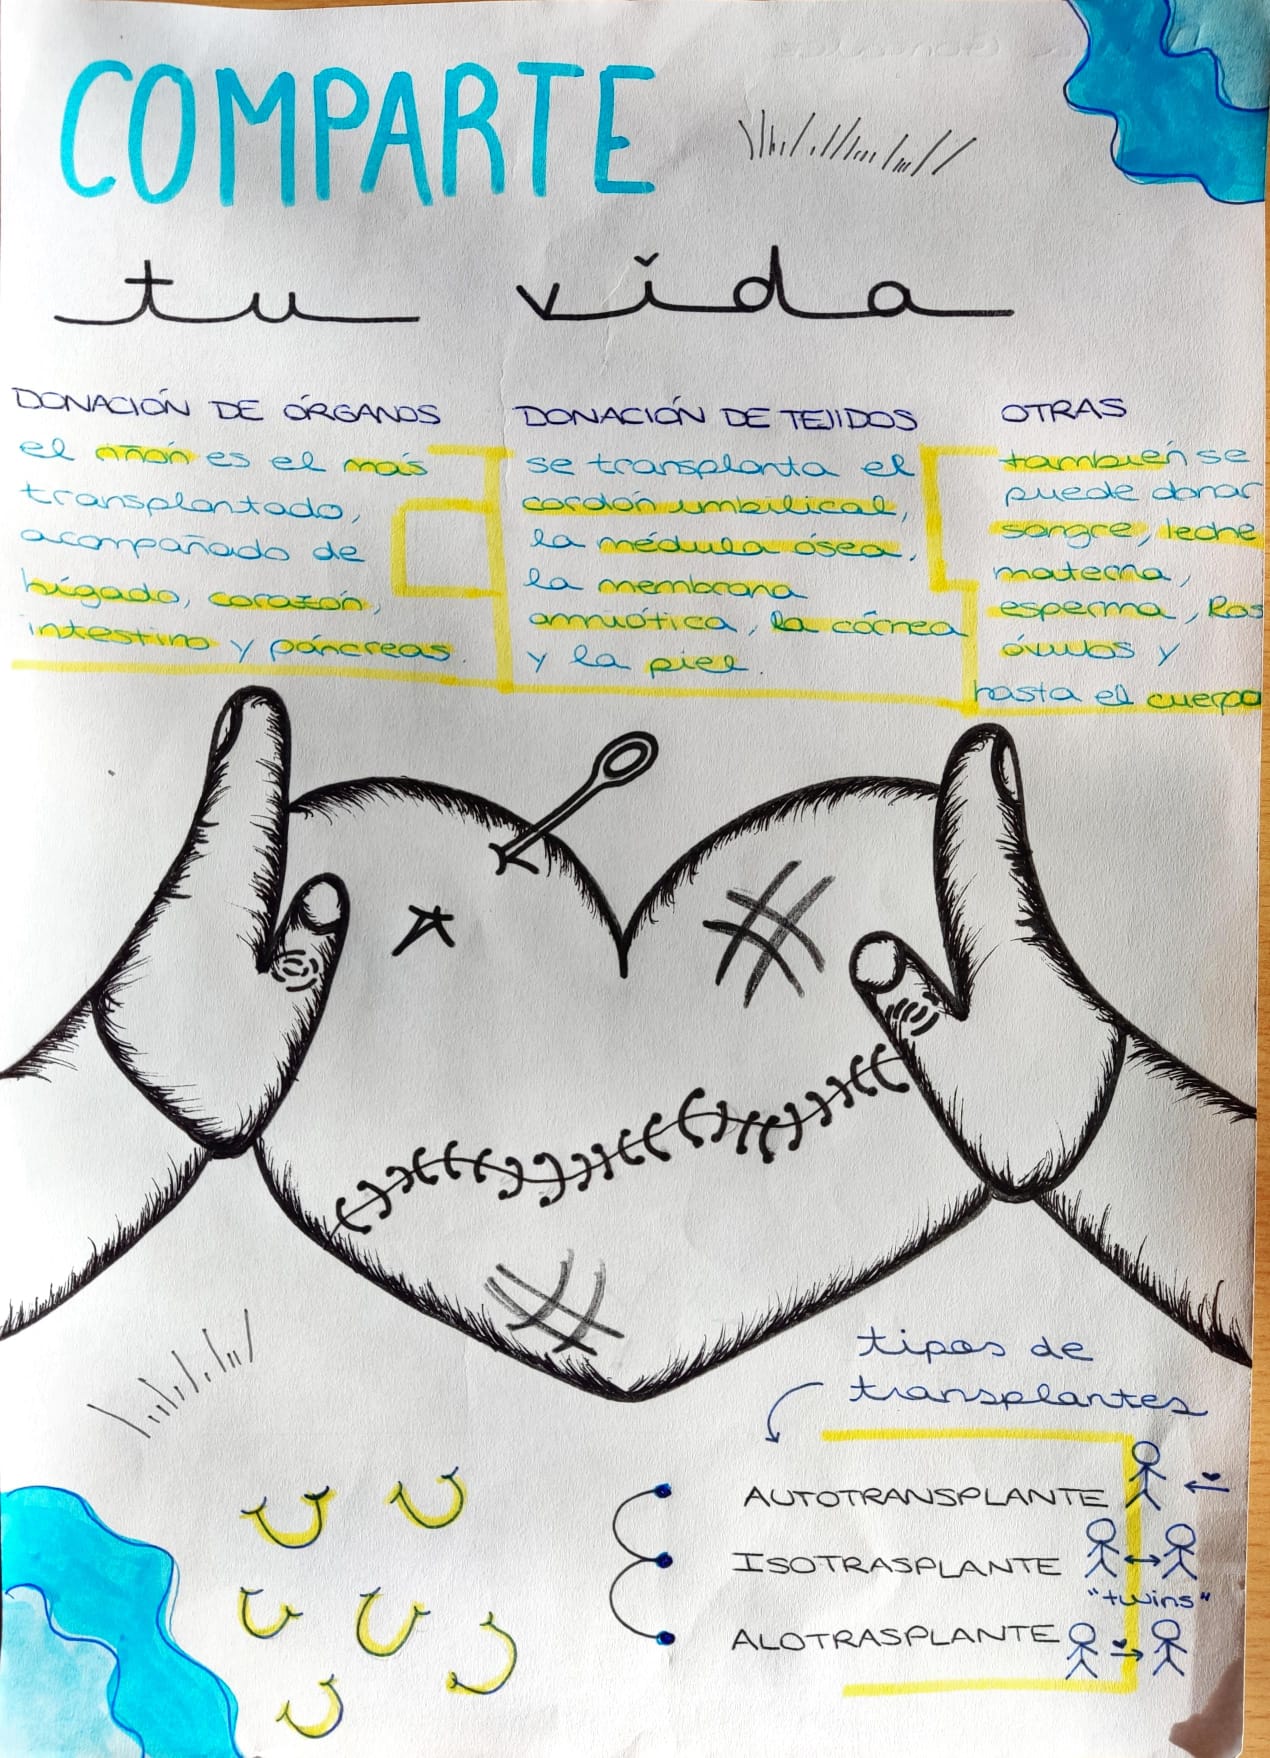 COMPARTE
tu vida
DONACIÓN DE ÓRGANOS
el riñón es el más
transplantado,
acompañado de
hígado, corazón,
intestino y páncreas.
DONACIÓN DE TEJIDOS
se transplanta el
cordón umbilical,
la médula ósea,
la membrana
amniótica, la córnea
y la piel.
OTRAS
también se
puede donar
sangre, leche
materna,
esperma, los
óvulos y
hasta el cuerpo
tipos de
transplantes
AUTOTRANSPLANTE
ISOTRASPLANTE
"twins"
ALOTRASPLANTE